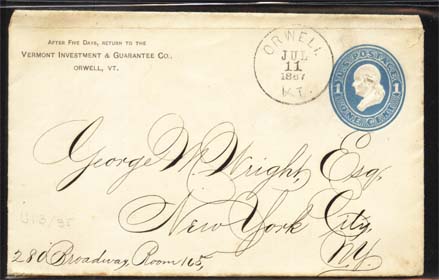 After Five Days, return to the
Vermont Investment & Guarantee Co.,
ORWELL, VT.
ORWELL,
JUL
11
1887
VT.
U.S. POSTAGE
1 1
ONE CENT
George M Wright, Esq.
New York City,
NY.
280 Broadway, Room 165,